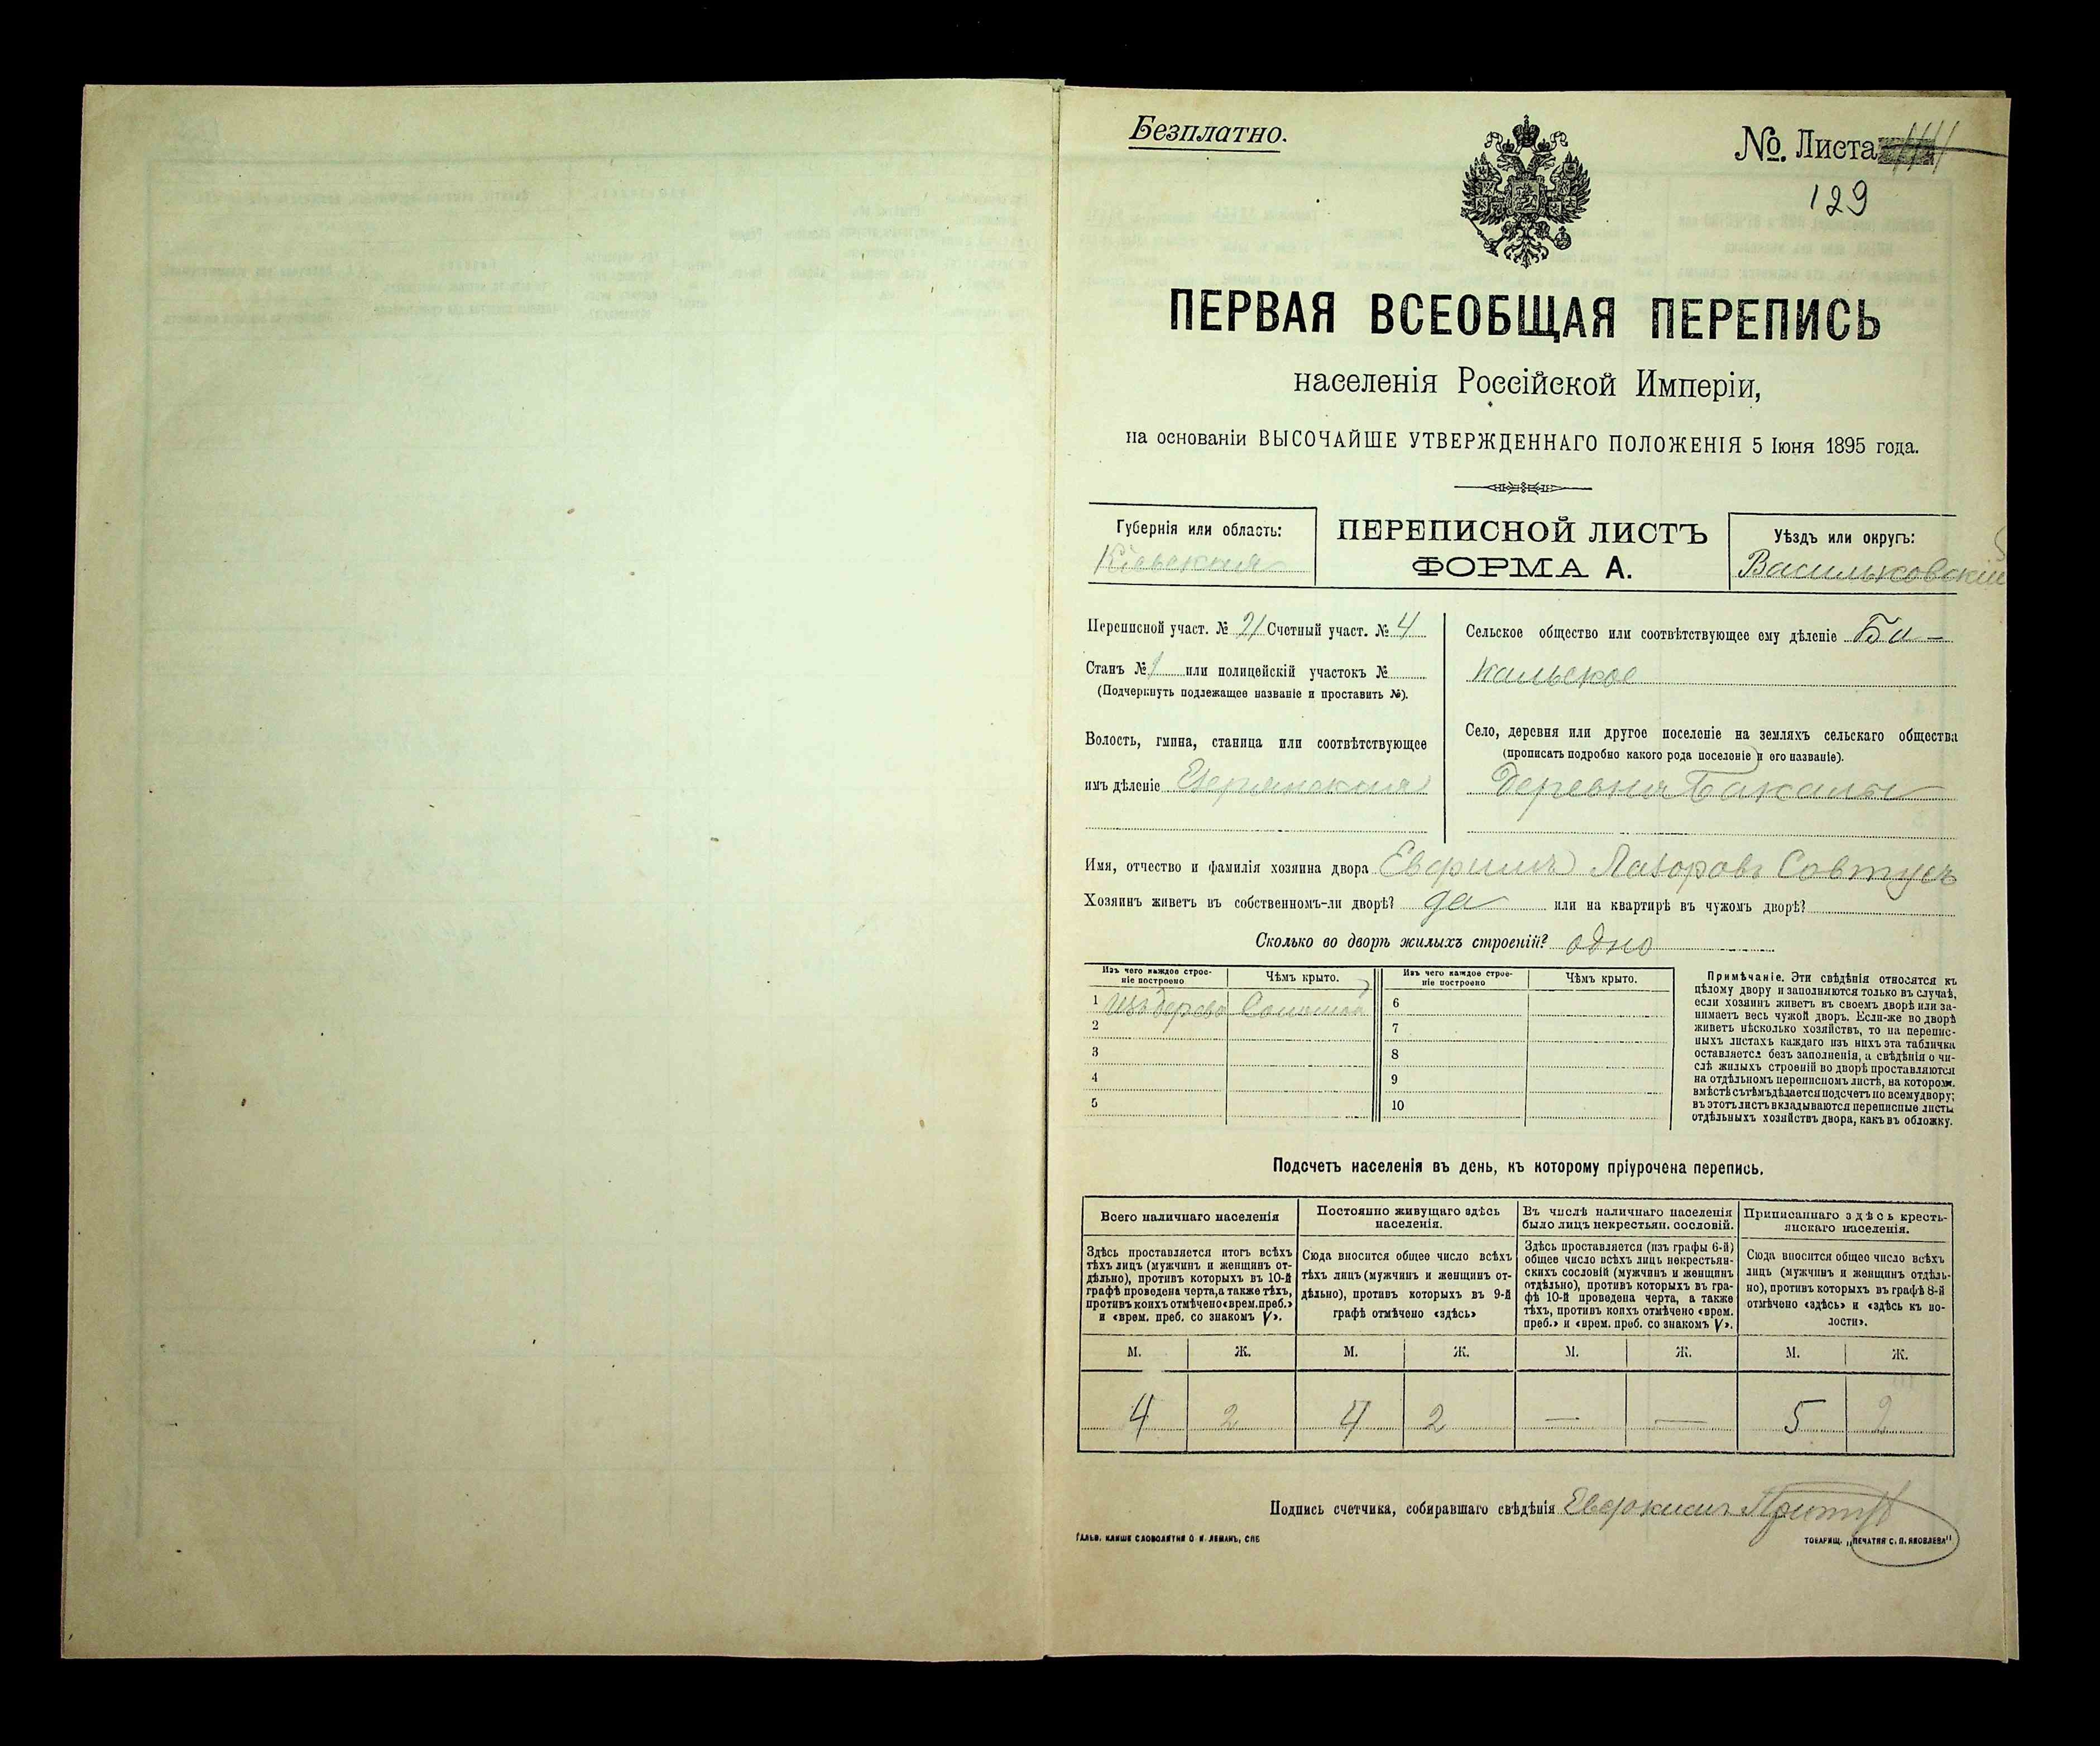 Безплатно.
№. Листа
129
ПЕРВАЯ ВСЕОБЩАЯ ПЕРЕПИСЬ
населенія Россійской Имперіи,
на основаніи ВЫСОЧАЙШЕ УТВЕРЖДЕННАГО ПОЛОЖЕНІЯ 5 Іюня 1895 года.
Губернія или область:
Кіевская
ПЕРЕПИСНОЙ ЛИСТЪ
ФОРМА А.
Уѣздъ или округъ:
Васильковскій
Переписной участ. № 21 Счетный участ. № 4
Станъ № 1 или полицейскій участокъ №
(Подчеркнуть подлежащее названіе и проставить №).
Волость, гмина, станица или соотвѣтствующее
имъ дѣленіе
Сельское общество или соотвѣтствующее ему дѣленіе Ба-
кальское
Село, деревня или другое поселеніе на земляхъ сельскаго общества
(прописать подробно какого рода поселеніе и его названіе).
Деревня Бакалы
Имя, отчество и фамилія хозяина двора Лазоровъ Совтусъ
Хозяинъ живетъ въ собственномъ-ли дворѣ? да или на квартирѣ въ чужомъ дворѣ?
Сколько во дворѣ жилыхъ строеній? одно
Изъ чего каждое строе-
ніе построено
Чѣмъ крыто.
Изъ чего каждое строе-
ніе построено
Чѣмъ крыто.
1 Изъ дерева Соломой
2
3
4
5
6
7
8
9
10
Примѣчаніе. Эти свѣдѣнія относятся къ
цѣлому двору и заполняются только въ случаѣ,
если хозяинъ живетъ въ своемъ дворѣ или за-
нимаетъ весь чужой дворъ. Если-же во дворѣ
живетъ нѣсколько хозяйствъ, то на перепис-
ныхъ листахъ каждаго изъ нихъ эта табличка
оставляется безъ заполненія, а свѣдѣнія о чи-
слѣ жилыхъ строеній во дворѣ проставляются
на отдѣльномъ переписномъ листѣ, на котором.
вмѣстѣ съ тѣмъ дѣлается подсчетъ по всему двору;
въ этотъ листъ вкладываются переписные листы
отдѣльныхъ хозяйствъ двора, какъ въ обложку.
Подсчетъ населенія въ день, къ которому пріурочена перепись.
Всего наличнаго населенія
Здѣсь проставляется итогъ всѣхъ
тѣхъ лицъ (мужчинъ и женщинъ от-
дѣльно), противъ которыхъ въ 10-й
графѣ проведена черта, а также тѣхъ,
противъ коихъ отмѣчено «врем. преб.»
и «врем. преб. со знакомъ V».
Постоянно живущаго здѣсь
населенія.
Сюда вносится общее число всѣхъ
тѣхъ лицъ (мужчинъ и женщинъ от-
дѣльно), противъ которыхъ въ 9-й
графѣ отмѣчено «здѣсь»
Въ числѣ наличнаго населенія
было лицъ некрестьян. сословій.
Здѣсь проставляется (изъ графы 6-й)
общее число всѣхъ лицъ некрестьян-
скихъ сословій (мужчинъ и женщинъ
отдѣльно), противъ которыхъ въ гра-
фѣ 10-й проведена черта, а также
тѣхъ, противъ коихъ отмѣчено «врем.
преб.» и «врем. преб. со знакомъ V».
Приписаннаго здѣсь кресть-
янскаго населенія.
Сюда вносится общее число всѣхъ
лицъ (мужчинъ и женщинъ отдѣль-
но), противъ которыхъ въ графѣ 8-й
отмѣчено «здѣсь» и «здѣсь къ во-
лости».
М. Ж. М. Ж. М. Ж. М. Ж.
4 2 4 2 — — 5 2
Подпись счетчика, собиравшаго свѣдѣнія
ГАЛЬВ. КЛИШЕ СЛОВОЛИТНИ О. И. ЛЕМАНЪ, СПБ
ТОВАРИЩ. „ПЕЧАТНЯ С. П. ЯКОВЛЕВА"